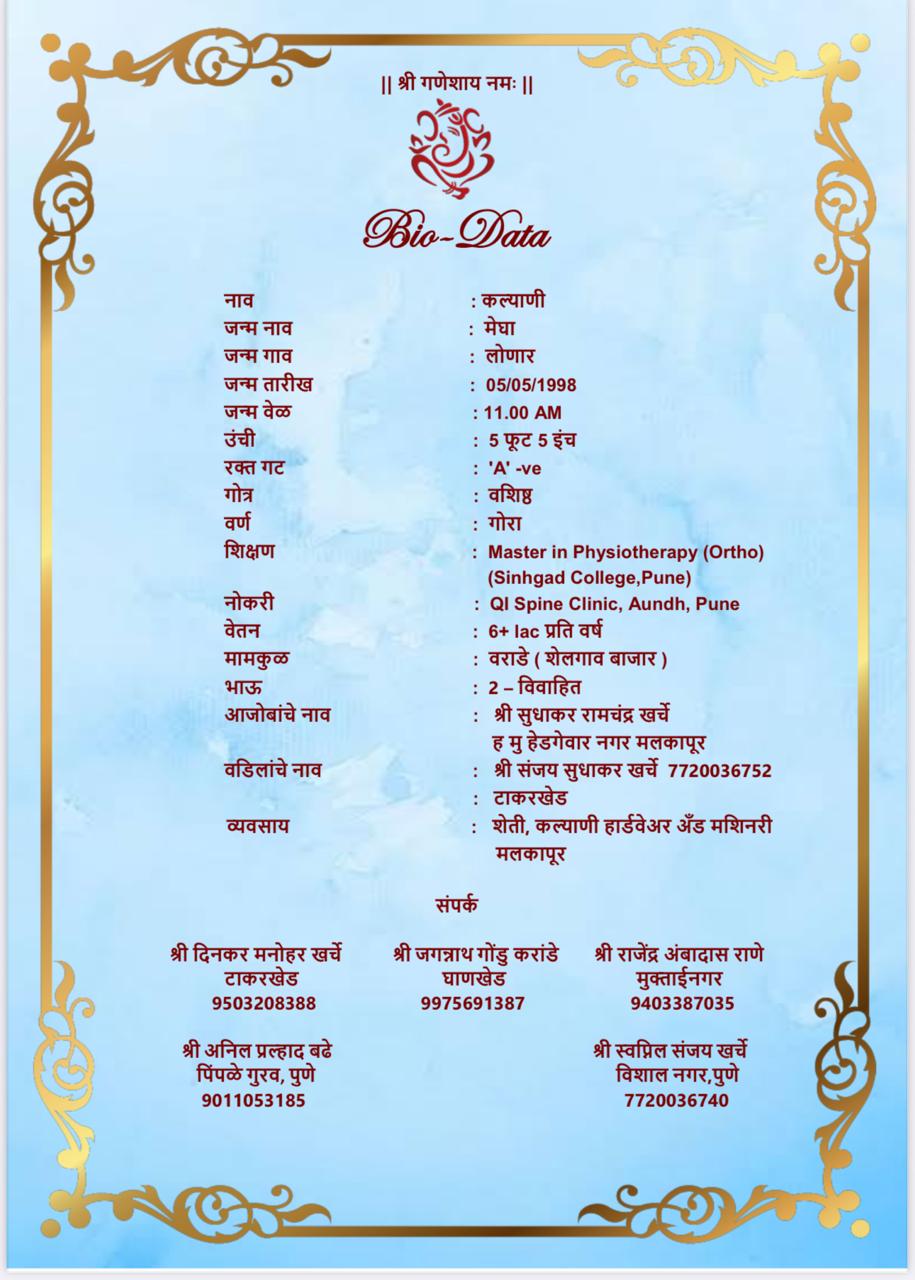 || श्री गणेशाय नमः ||
Bio-Data
नाव : कल्याणी
जन्म नाव : मेघा
जन्म गाव : लोणार
जन्म तारीख : 05/05/1998
जन्म वेळ : 11.00 AM
उंची : 5 फूट 5 इंच
रक्त गट : 'A' -ve
गोत्र : वशिष्ठ
वर्ण : गोरा
शिक्षण : Master in Physiotherapy (Ortho)
(Sinhgad College,Pune)
नोकरी : QI Spine Clinic, Aundh, Pune
वेतन : 6+ lac प्रति वर्ष
मामकुळ : वराडे ( शेलगाव बाजार )
भाऊ : 2 – विवाहित
आजोबांचे नाव : श्री सुधाकर रामचंद्र खर्चे
ह मु हेडगेवार नगर मलकापूर
वडिलांचे नाव : श्री संजय सुधाकर खर्चे 7720036752
: टाकरखेड
व्यवसाय : शेती, कल्याणी हार्डवेअर अँड मशिनरी
मलकापूर
संपर्क
श्री दिनकर मनोहर खर्चे श्री जगन्नाथ गोंडु करांडे श्री राजेंद्र अंबादास राणे
टाकरखेड घाणखेड मुक्ताईनगर
9503208388 9975691387 9403387035
श्री अनिल प्रल्हाद बढे श्री स्वप्निल संजय खर्चे
पिंपळे गुरव, पुणे विशाल नगर,पुणे
9011053185 7720036740